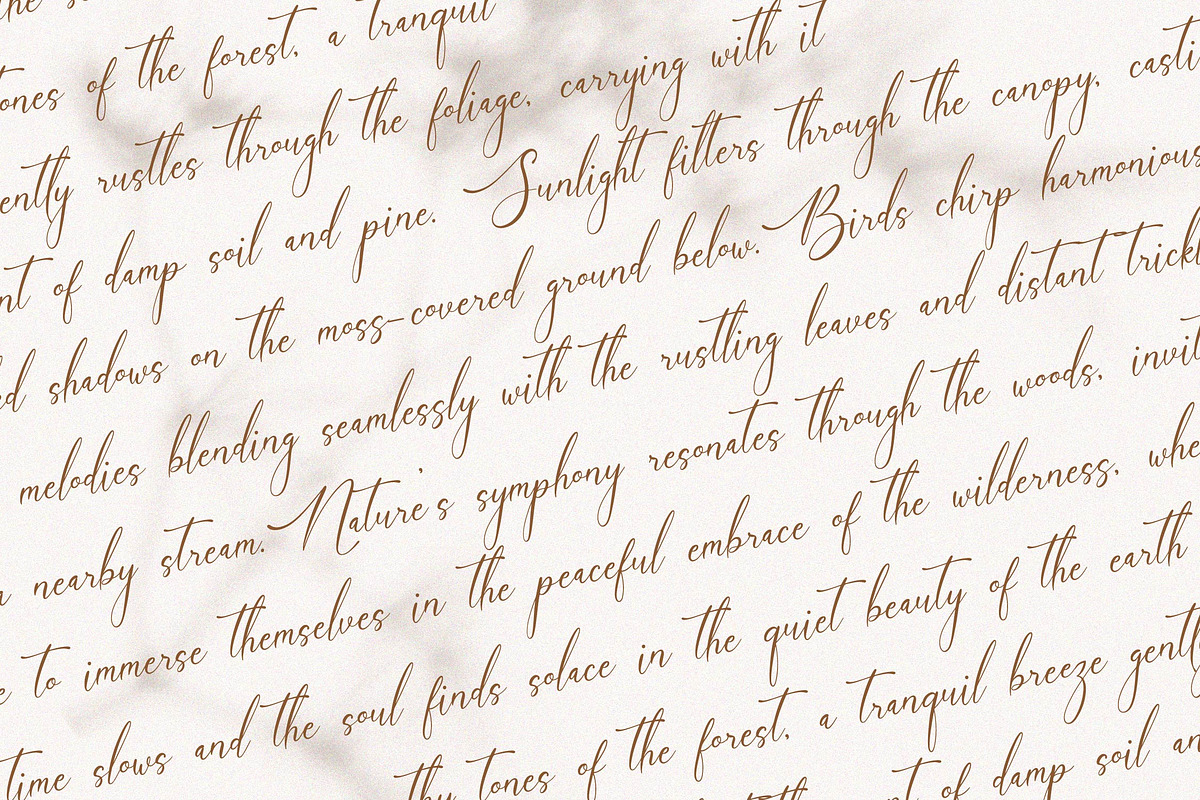 the
ones of the forest, a tranquil
ently rustles through the foliage, carrying with it
nt of damp soil and pine. Sunlight filters through the canopy, casti
ed shadows on the moss-covered ground below. Birds chirp harmonious
melodies blending seamlessly with the rustling leaves and distant trickl
nearby stream. Nature's symphony resonates through the woods, invit
e to immerse themselves in the peaceful embrace of the wilderness, whe
time slows and the soul finds solace in the quiet beauty of the earth
thy tones of the forest, a tranquil breeze gentl
of damp soil an